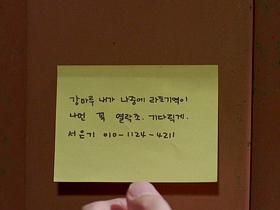 강마루 내가 나중에 라도 기억이
나면 꼭 연락죠. 기다릴게.
서은기 010-1124-4211